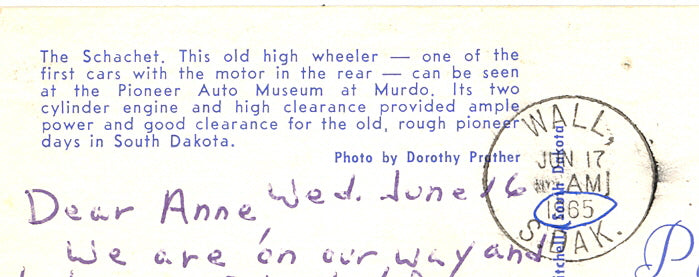 The Schachet. This old high wheeler — one of the
first cars with the motor in the rear — can be seen
at the Pioneer Auto Museum at Murdo. Its two
cylinder engine and high clearance provided ample
power and good clearance for the old, rough pioneer
days in South Dakota.
Photo by Dorothy Prather
WALL,
JUN 17
AM
1965
S. DAK.
Mitchell, South Dakota
Wed. June 16
Dear Anne,
We are on our way and
P